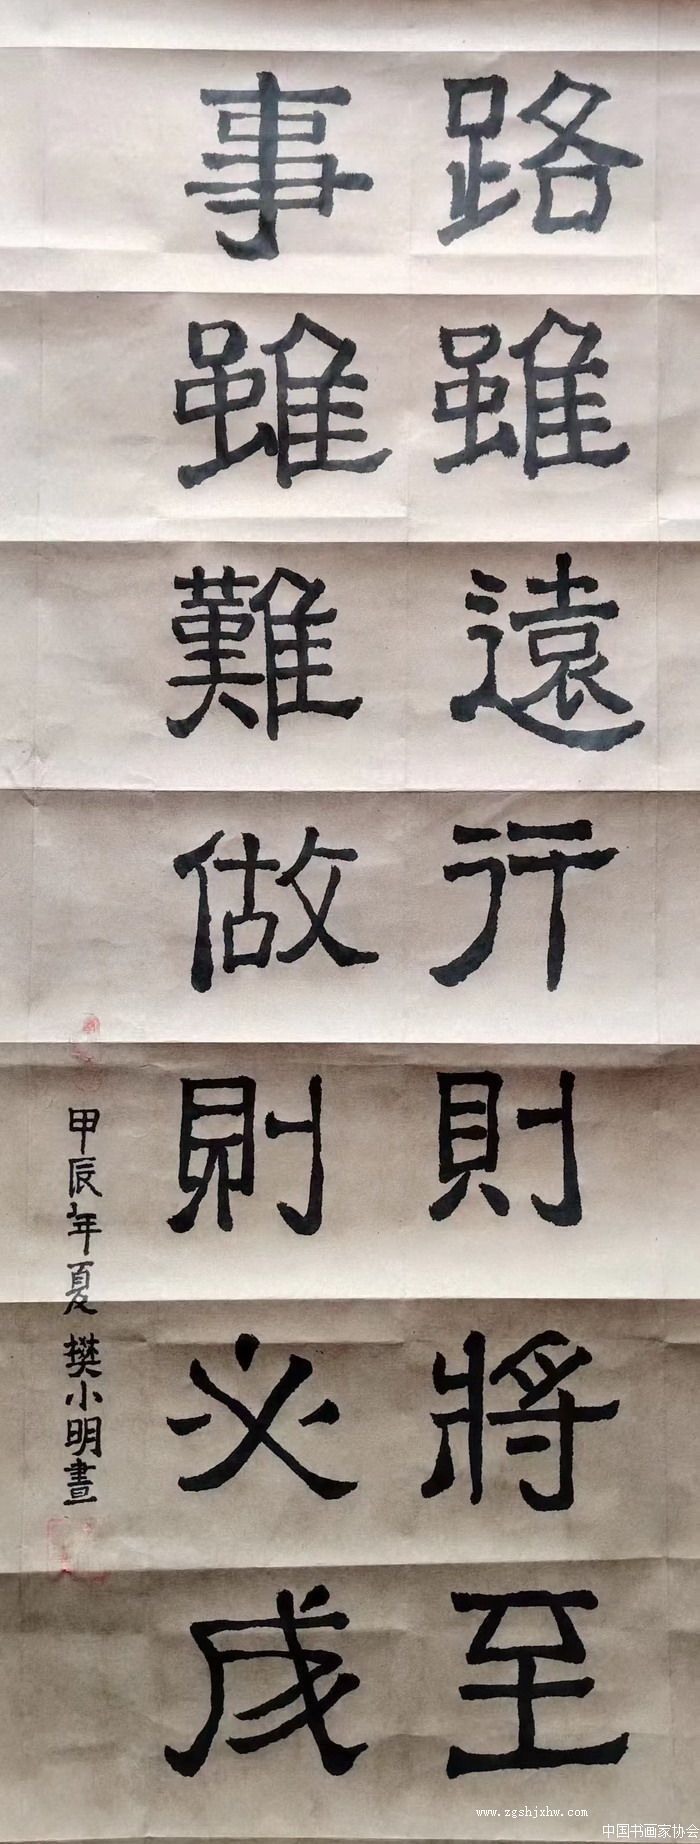 路雖遠行則將至
事雖難做則必成
甲辰年夏樊小明書
www.zgshjxhw.com
中国书画家协会